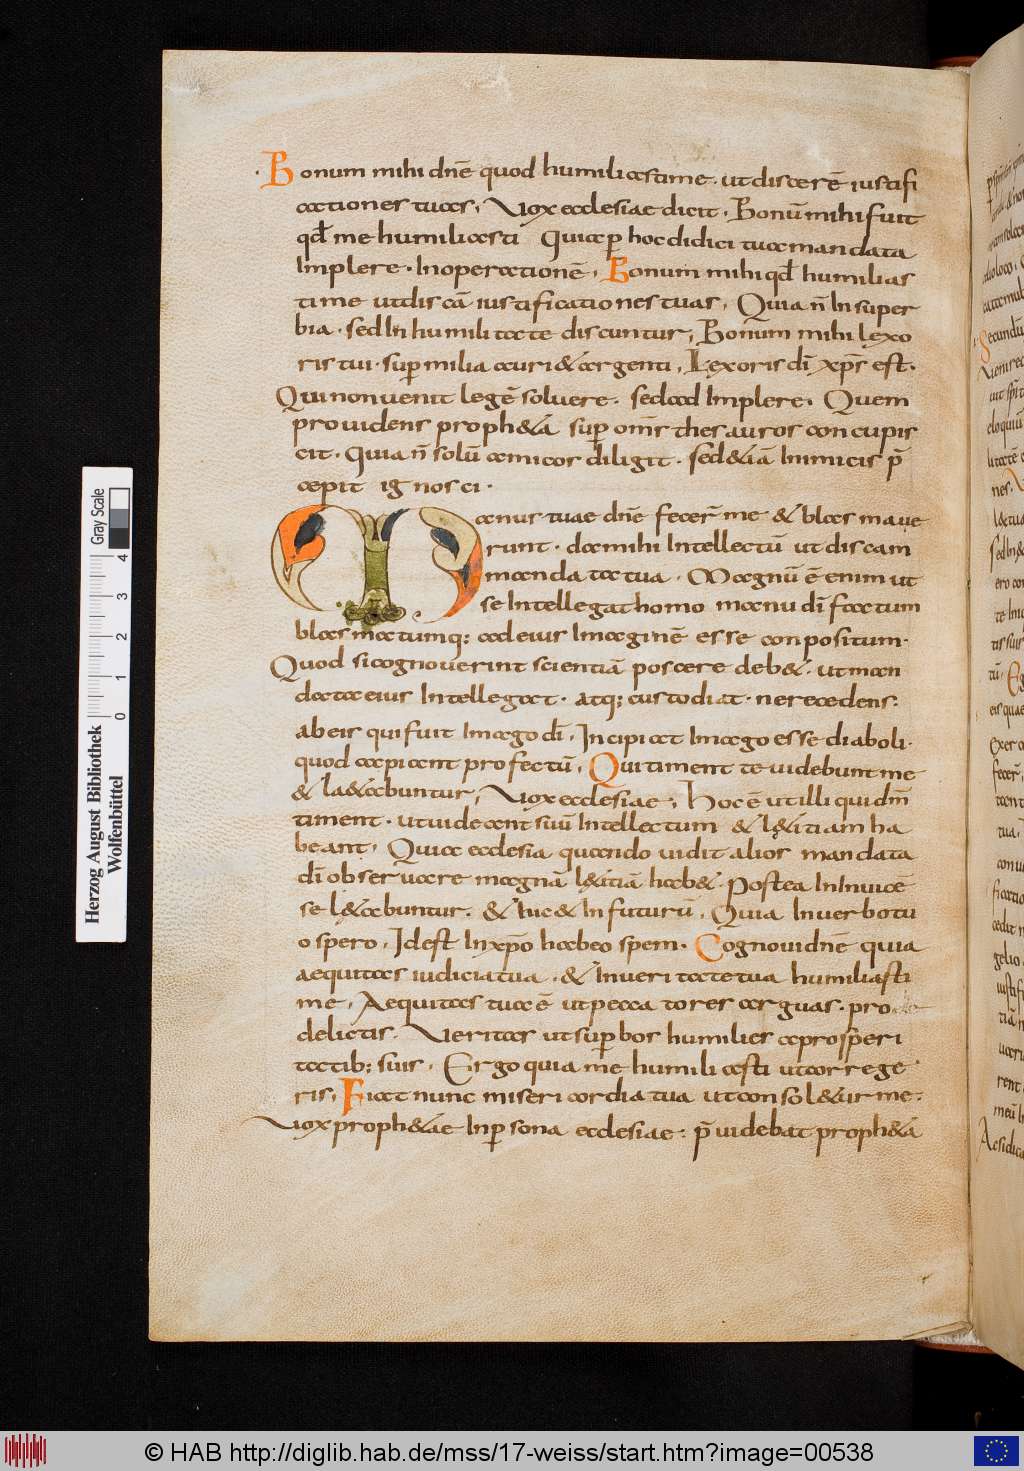 Bonum mihi dnē quod humiliastime. ut discerē iustifi
cationes tuas, Vox ecclesiae dicit, Bonū mihi fuit
qđ me humiliasti Quia ꝑ hoc didici tua mandata
Implere. In operationē, Bonum mihi qđ humilias
ti me utdiscā iustificationes tuas, Quia ñ In super
bia. sed In humilitate discuntur, Bonum mihi lex o
ris tui. suꝑ milia auri & argenti, Lex oris dī xp̄s est.
Qui non uenit legē soluere. sed ad Implere. Quem
prouidens proph&ā suꝑ om̄s thesauros concupis
cit. Quia ñ solū amicos diligit. sed &iā Inimicis p̄
cepit ignosci.
Manus tuae dnē fecer̄ me & plasmaue
runt. da mihi Intellectū ut discam
mandata tua. Magnū ē enim ut
se Intellegat homo manu dī factum
plasmatumq; ad eius Imaginē esse conpositum.
Quod si cognouerint scientiā poscere deb&. ut man
data eius Intellegat. atq; custodiat. ne recedens
ab eis qui fuit Imago dī, Incipiat Imago esse diaboli.
quod capiant profectū, Qui timent te uidebunt me
& la&abuntur, Vox ecclesiae, Hoc ē ut illi qui dm̄
timent. ut uideant suū Intellectum & l&itiam ha
beant, Quia ecclesia quando uidit alios mandata
dī obseruare magnā l&itiā hab&. Postea In Inuicē
se l&abuntur. & huc & In futurū, Quia In uerbo tu
o spero, Idest In xp̄o habeo spem. Cognoui dnē quia
aequitas iudicia tua. & In ueritate tua humiliasti
me, Aequitas tua ē ut peccatores arguas. pro
delictis. Veritas ut suꝑbos humilies a prosꝑeri
tatib; suis, Ergo quia me humiliasti ut corrige
ris, Fiat nunc misericordia tua ut consol&ur me.
Vox proph&ae In ꝑsona ecclesiae. p̄uidebat proph&ā
Gray Scale
0 1 2 3 4
Herzog August Bibliothek
Wolfenbüttel
© HAB http://diglib.hab.de/mss/17-weiss/start.htm?image=00538